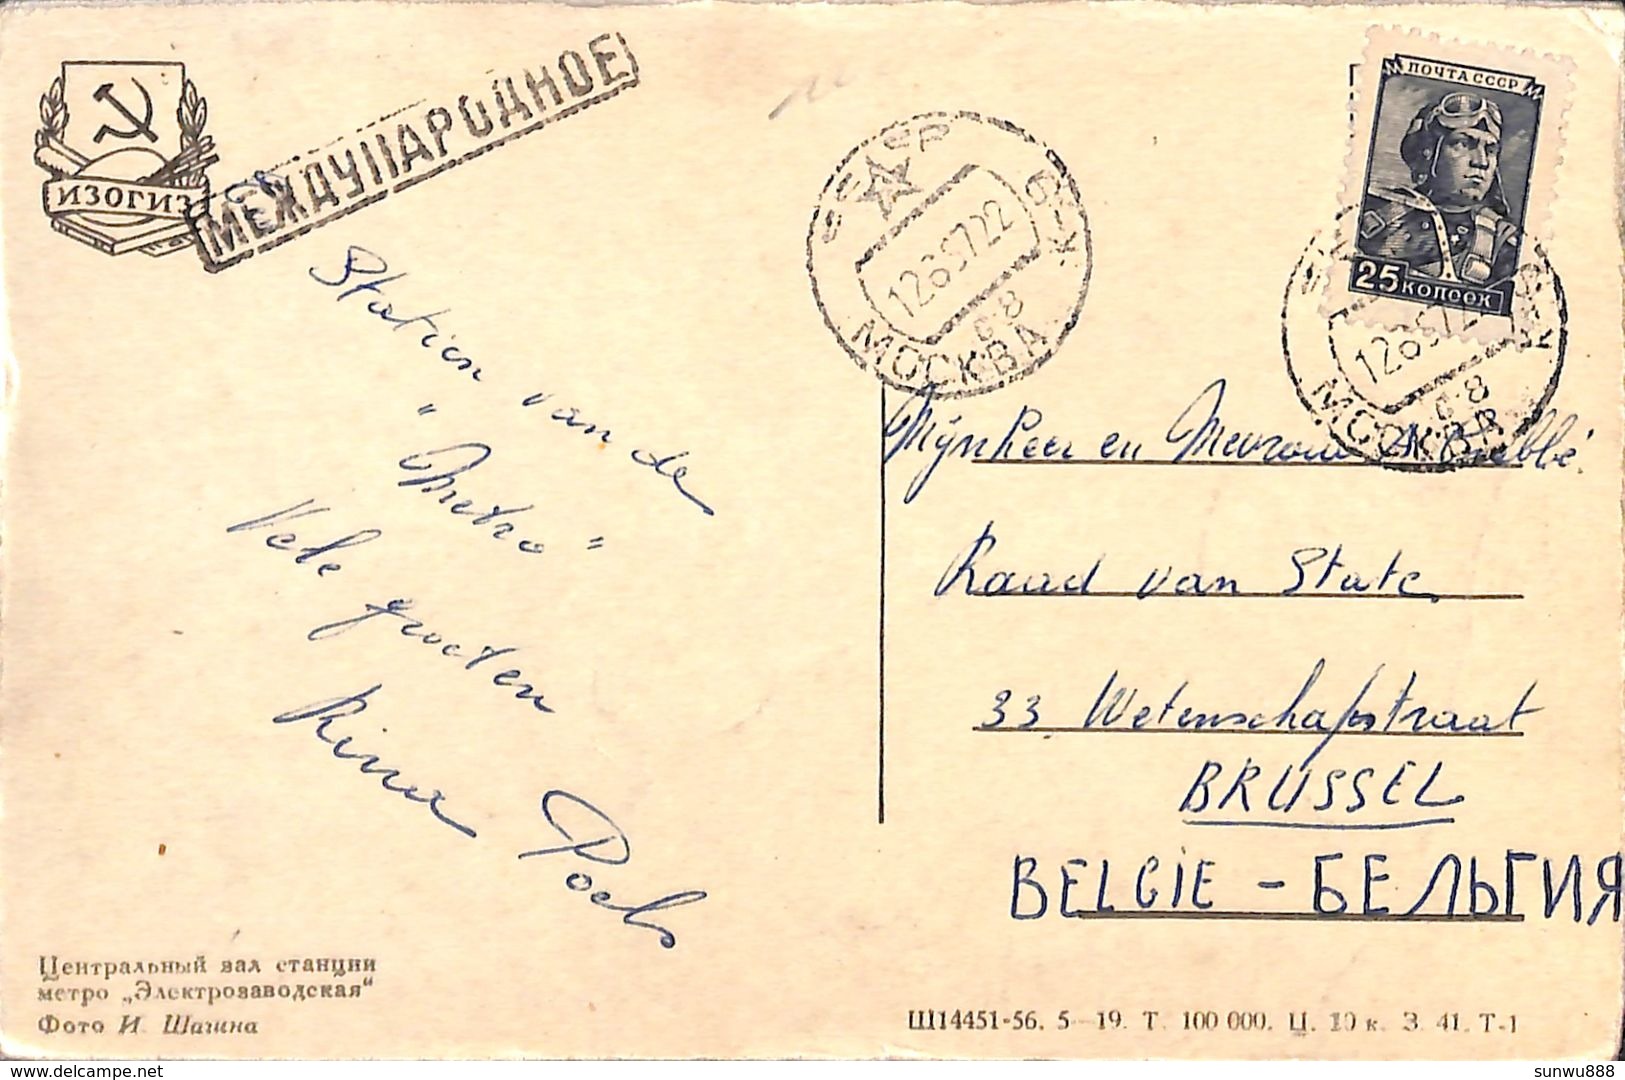 ИЗОГИЗ
МЕЖДУНАРОДНОЕ
ПОЧТА СССР
25 КОПЕЕК
МОСКВА
МОСКВА
Station van de
"Metro"
Vele groeten
Rina Poels
Mijnheer en Mevrouw
Raad van State
33 Wetenschapstraat
BRUSSEL
BELGIE - БЕЛЬГИЯ
Центральный зал станции
метро „Электрозаводская"
Фото И. Шагина
Ш14451-56. 5-19. Т. 100 000. Ц. 10 к. З. 41. Т-1
delcampe.net
sunwu888